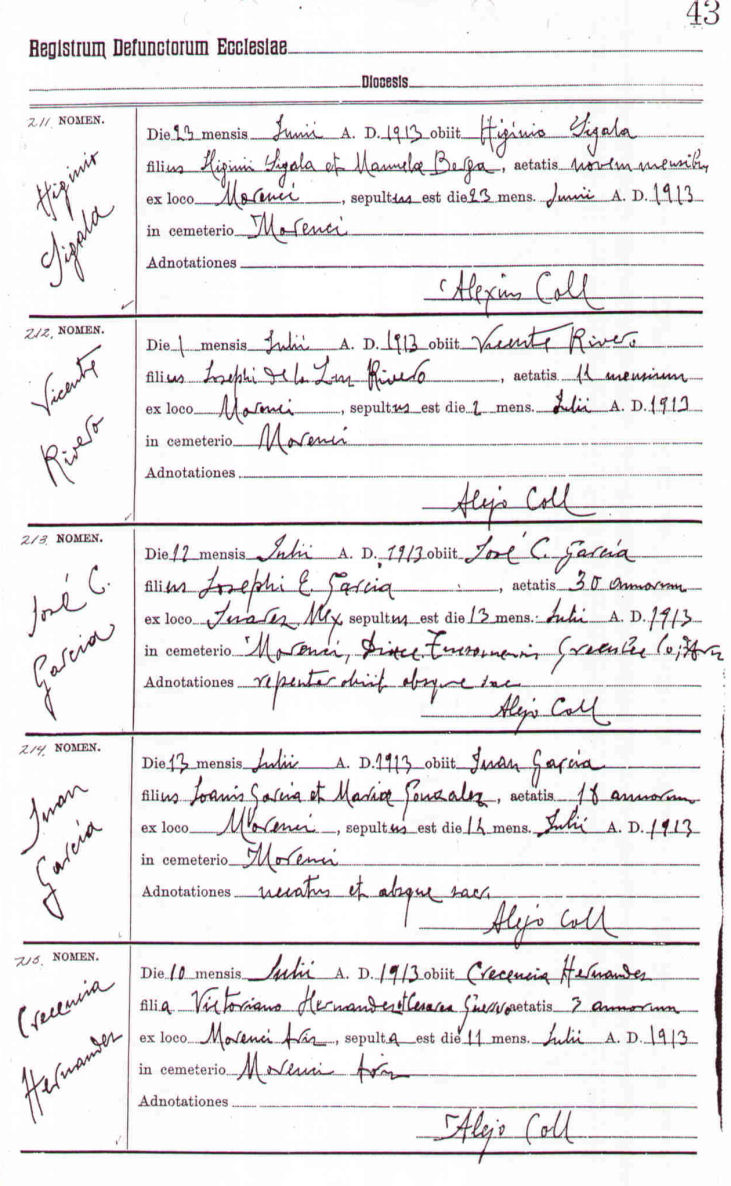 43
Registrum Defunctorum Ecclesiae
Diocesis
211. NOMEN.
Higinio
Sigala
Die 23 mensis Junii A. D. 1913 obiit Higinio Sigala
filius Higinii Sigala et Manuela Berga, aetatis novem mensibus
ex loco Morenci, sepultus est die 23 mens. Junii A. D. 1913
in cemeterio Morenci
Adnotationes
Alexius Coll
212. NOMEN.
Vicente
Rivero
Die 1 mensis Julii A. D. 1913 obiit Vicente Rivero
filius Josephi de la Luz Rivero, aetatis 11 mensium
ex loco Morenci, sepultus est die 2 mens. Julii A. D. 1913
in cemeterio Morenci
Adnotationes
Alejo Coll
213. NOMEN.
José C.
García
Die 12 mensis Julii A. D. 1913 obiit José C. García
filius Josephi E. Garcia, aetatis 30 annorum
ex loco Juarez Mex sepultus est die 13 mens. Julii A. D. 1913
in cemeterio Morenci, Greenlee Co., Ariz
Adnotationes repenter obiit absque sac
Alejo Coll
214. NOMEN.
Juan
García
Die 13 mensis Julii A. D. 1913 obiit Juan García
filius Joanis Garcia et Maria Gonzalez, aetatis 18 annorum
ex loco Morenci, sepultus est die 14 mens. Julii A. D. 1913
in cemeterio Morenci
Adnotationes necatus et absque sacr.
Alejo Coll
215. NOMEN.
Crecencia
Hernandez
Die 10 mensis Julii A. D. 1913 obiit Crecencia Hernandez
filia Victoriano Hernandez et Cesarea aetatis 3 annorum
ex loco Morenci Ariz, sepulta est die 11 mens. Julii A. D. 1913
in cemeterio Morenci Ariz
Adnotationes
Alejo Coll